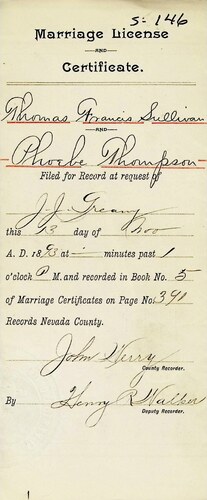 S-146
Marriage License
AND
Certificate.
Thomas Francis Sullivan
AND
Phoebe Thompson
Filed for Record at request of
J. J. Greany
this 13 day of Nov
A. D. 1893 at - minutes past 1
o'clock P. M. and recorded in Book No. 5
of Marriage Certificates on Page No. 391
Records Nevada County.
John Werry
County Recorder.
By Henry R Walker
Deputy Recorder.